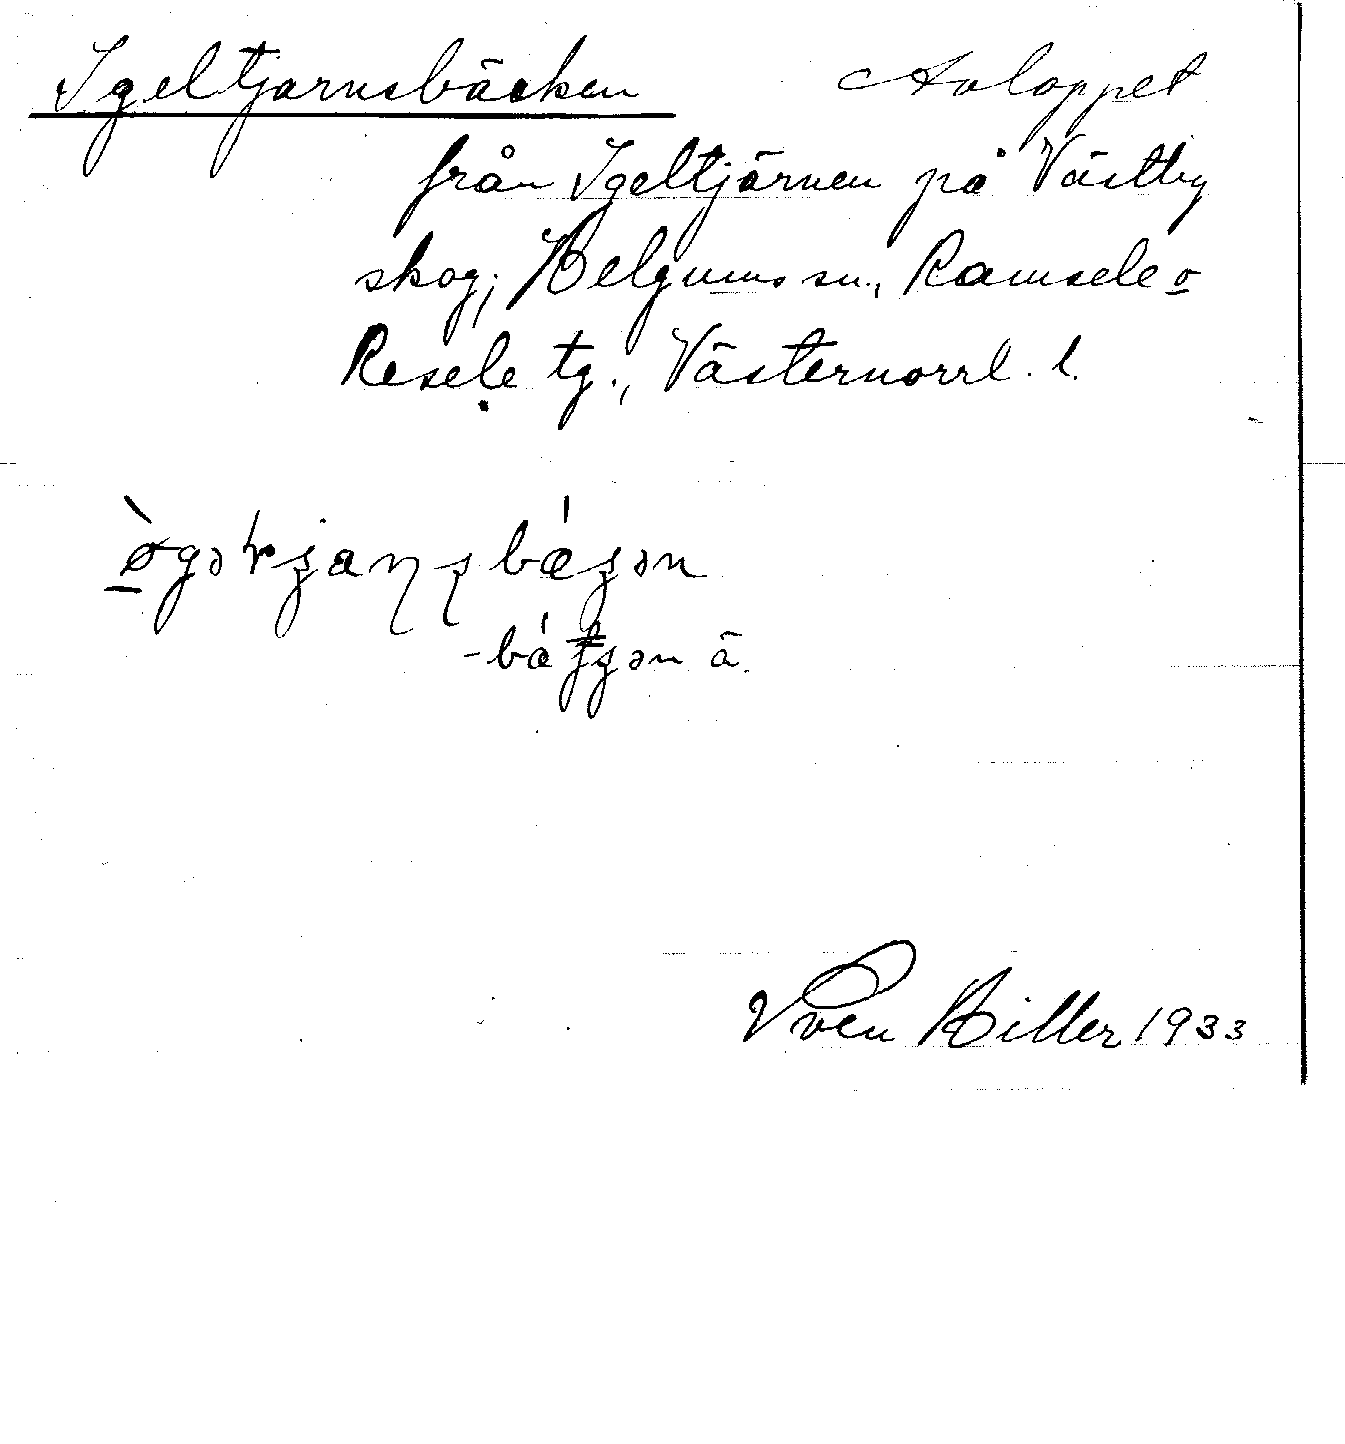 Igeltjärnsbäcken Avloppet
från Igeltjärnen på Västby
skog; Helgums sn., Ramsele o
Resele tg., Västernorrl. l.
ä.
Sven Hiller 1933